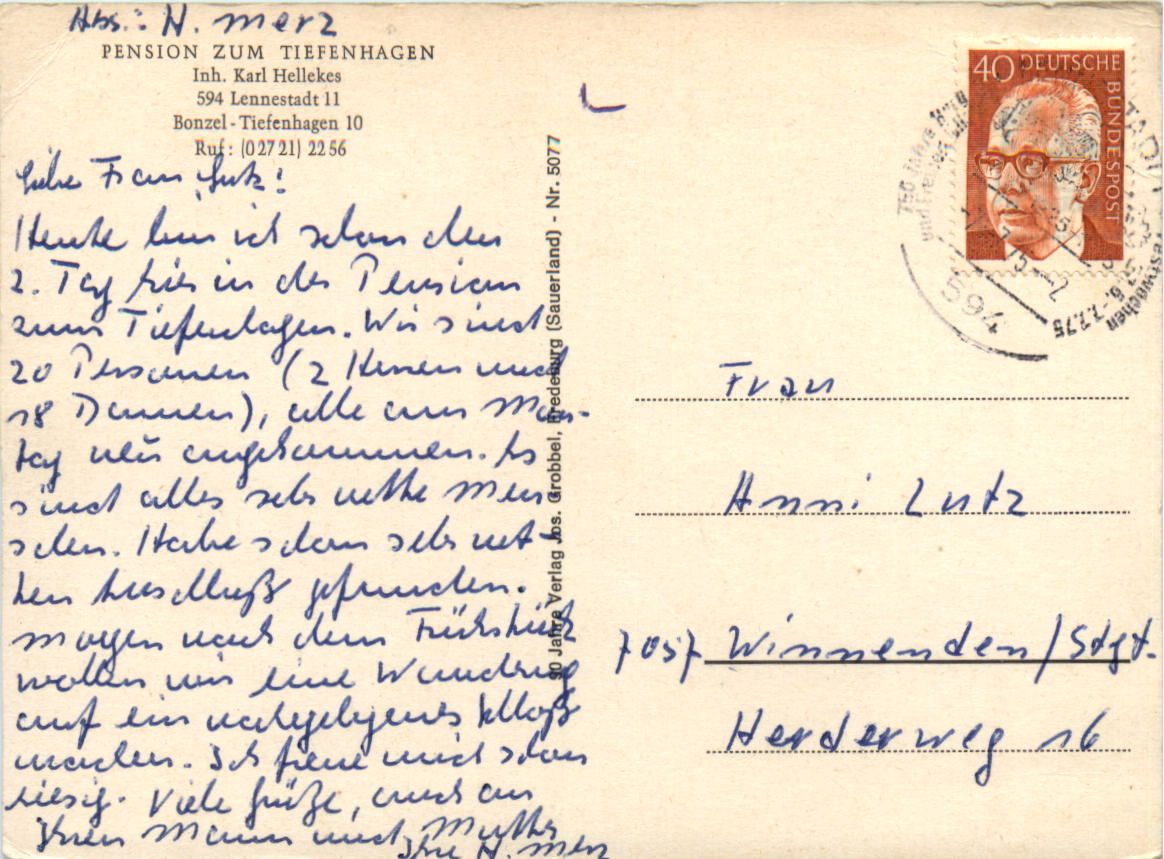 Abs.: H. Merz
PENSION ZUM TIEFENHAGEN
Inh. Karl Hellekes
594 Lennestadt 11
Bonzel - Tiefenhagen 10
Ruf: (0 27 21) 22 56
Liebe Frau Lutz!
Heute bin ich schon den
2. Tag hier in der Pension
zum Tiefenhagen. Wir sind
20 Personen (2 Herren und
18 Damen), alle am Mon-
tag neu angekommen. Es
sind alles sehr nette Men
schen. Habe schon sehr net-
ten Anschluß gefunden.
Morgen nach dem Frühstück
wollen wir eine Wanderung
auf ein nahegelegenes Schloß
machen. Ich freue mich schon
riesig. Viele Grüße, auch an
Ihren Mann und Mutter
Ihre H. Merz
90 Jahre Verlag Jos. Grobbel, Fredeburg (Sauerland) - Nr. 5077
40 DEUTSCHE
BUNDESPOST
750 Jahre
und Freiheit
Festwochen
6.-7.7.75
594
Frau
Anni Lutz
7057 Winnenden/Stgt.
Herderweg 16